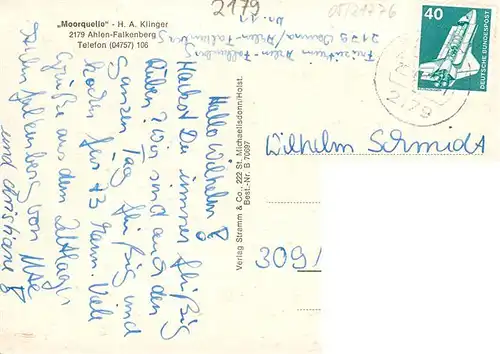 „Moorquelle" - H. A. Klinger
2179 Ahlen-Falkenberg
Telefon (04757) 106
2179
2179 Wanna/Ahlen-Falkenberg
40
DEUTSCHE BUNDESPOST
2179
Hallo Wilhelm!
Hackst Du immer fleißig
Rüben? Wir sind auch den
ganzen Tag fleißig und
kochen für 43 Mann. Viele
Grüße aus dem Zeltlager
Ahlen Falkenberg von
und Christiane!
Verlag Stramm & Co., 222 St. Michaelisdonn/Holst.
Best.-Nr. B 70697
Wilhelm Schmidt
309